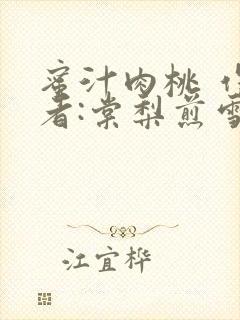 蜜汁肉桃
者:棠梨煎雪
江宜桦